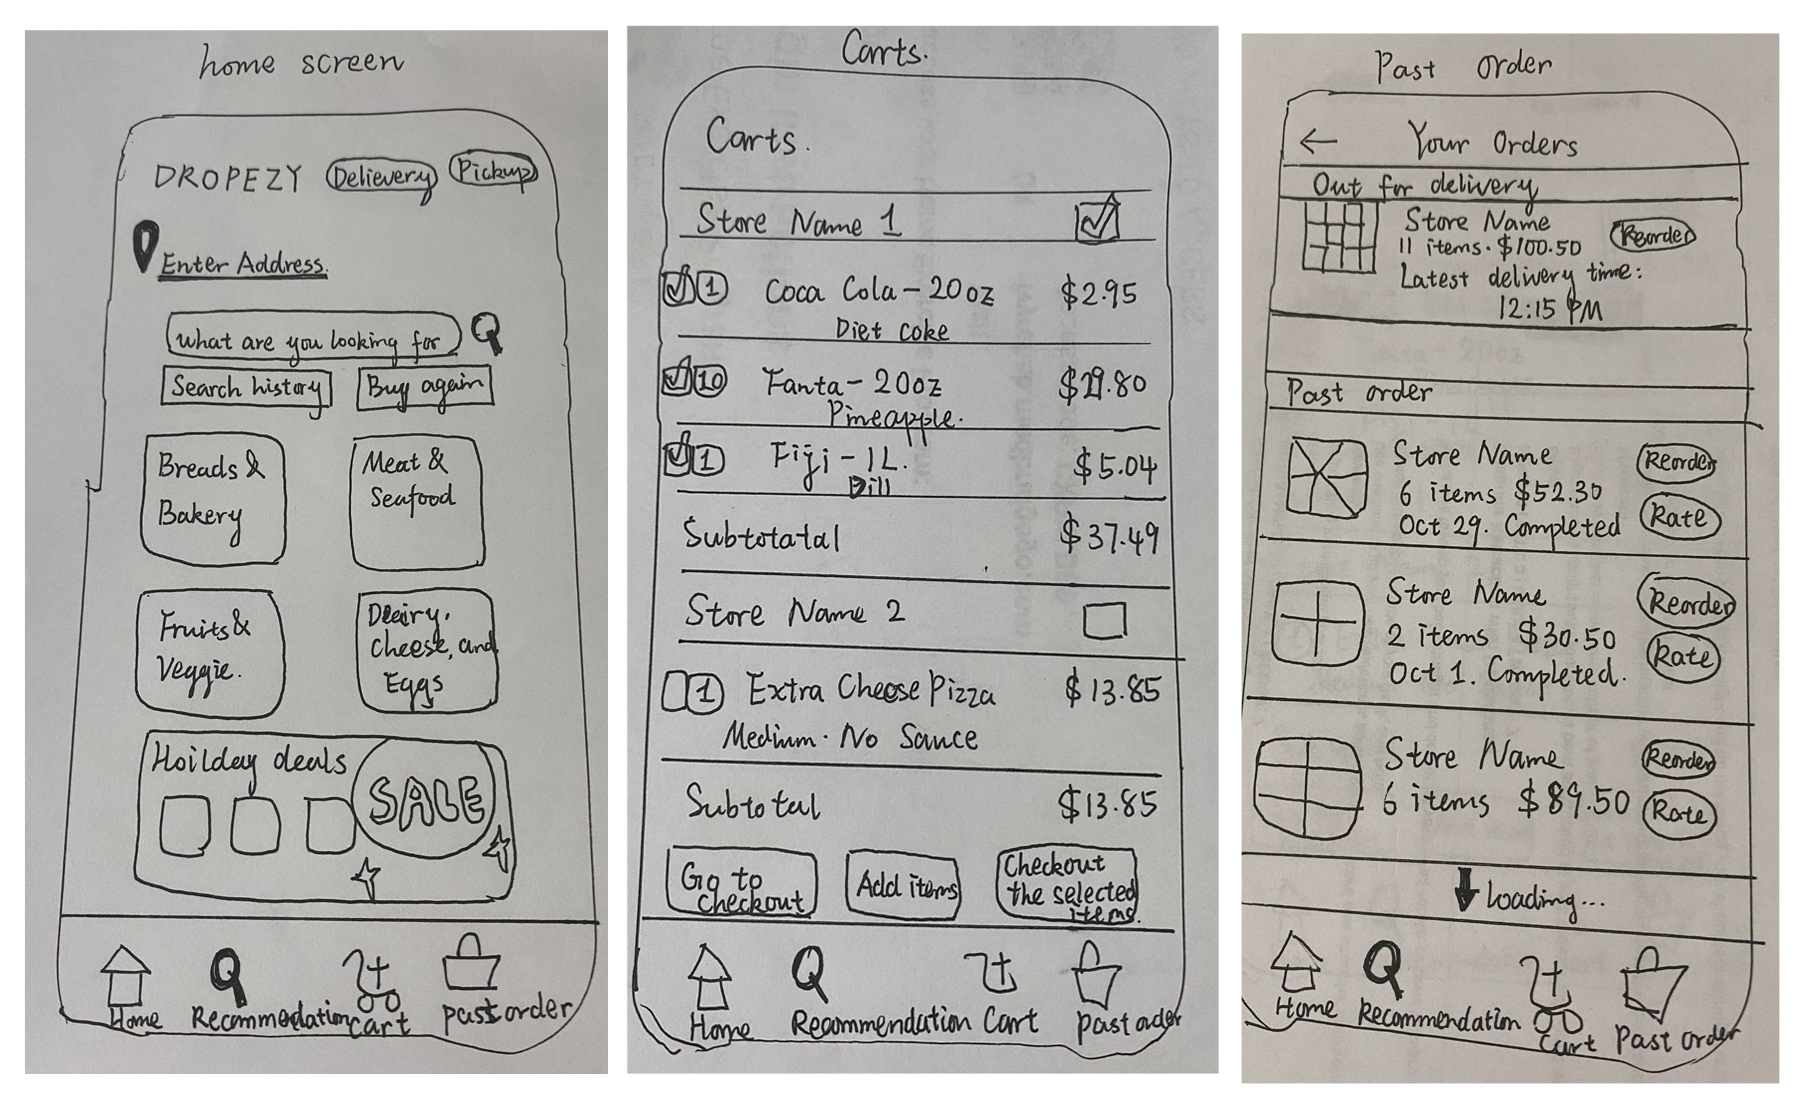 home screen
DROPEZY Delievery Pickup
Enter Address.
What are you looking for
Search history Buy again
Breads &
Bakery
Meat &
Seafood
Fruits &
Veggie.
Deairy.
cheese, and
Eggs
Hoilday deals
SALE
Home Recommedation Cart past order
Carts.
Carts.
Store Name 1
1 Coca Cola - 20oz $2.95
Diet coke
10 Fanta - 20oz $29.80
Pineapple.
1 Fiji - 1L. $5.04
Subtotatal $37.49
Store Name 2
1 Extra Cheese Pizza $13.85
Medium · No Sauce
Subtotal $13.85
Go to
checkout
Add items
Checkout
the selected
items.
Home Recommendation Cart past order
Past order
← Your Orders
Out for delivery
Store Name
11 items · $100.50
Reorder
Latest delivery time:
12:15 PM
Past order
Store Name
6 items $52.30
Oct 29. Completed
Reorder
Rate
Store Name
2 items $30.50
Oct 1. Completed.
Reorder
Rate
Store Name
6 items $89.50
Reorder
Rate
loading...
Home Recommendation Cart Past order